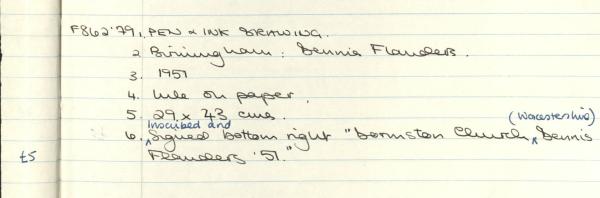 F862'79. 1. PEN & INK DRAWING.
2. Birmingham: Dennis Flanders.
3. 1951
4. Ink on paper.
5. 29 x 43 cms.
Inscribed and (Worcestershire)
6. Signed bottom right "Dormston Church, Dennis
£5 Flanders '51."